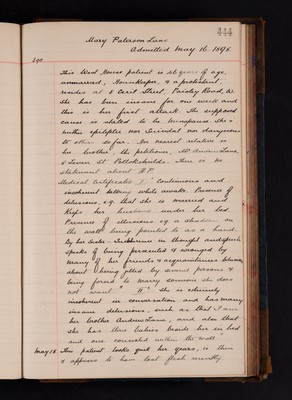 444
Mary Paterson Lane
Admitted May 16. 1898.
This West House patient is 46 years of age,
unmarried, Housekeeper, & a protestant,
resides at 5 Cecil Street, Paisley Road, W.
She has been insane for one week and
this is her first attack. The supposed
cause is stated to be menopause. She is
neither epileptic nor Suicidal nor dangerous
to others so far. Her nearest relative is
her brother & the petitioner, Mr Andrew Lane,
St Pollokshields. There is no
statement about H.P.
Medical Certificates I "Continuous and
incoherent talking while awake. Presence of
delusions, e.g. that she is married and
keeps her husband under her bed
Presence of illusions e.g. a shadow on
the wall being pointed to as a hand.
By her Sister - Incoherence in thought and speech
Speaks of being persecuted & wronged by
many of her friends & acquaintances
about being jilted by several persons &
being forced to marry someone she does
not want." II "She is extremely
incoherent in conversation and has many
insane delusions, such as that I am
her brother Andrew Lane, and also that
she has three babies beside her in bed
and one concealed within the wall
May 18. This patient looks quite her years, is thin
& appears to have lost flesh recently